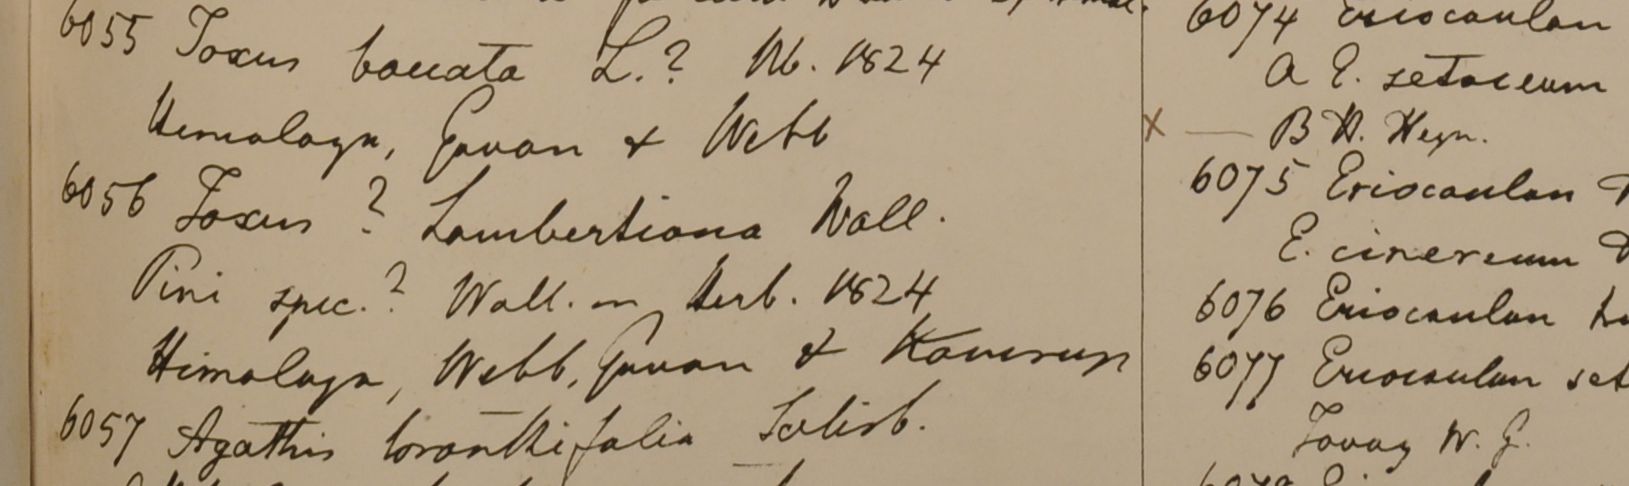 6055 Taxus baccata L.? Hb. 1824
Himalaya, Govan & Webb
6056 Taxus ? Lambertiana Wall.
Pini spec.? Wall. in Herb. 1824
Himalaya, Webb, Govan & Kamrup
6057 Agathis loranthifolia Salisb.
6074 Eriocaulon
a E. setaceum
x — B H. Heyn.
6075 Eriocaulon
E. cinereum
6076 Eriocaulon
6077 Eriocaulon set
Tavoy W. G.